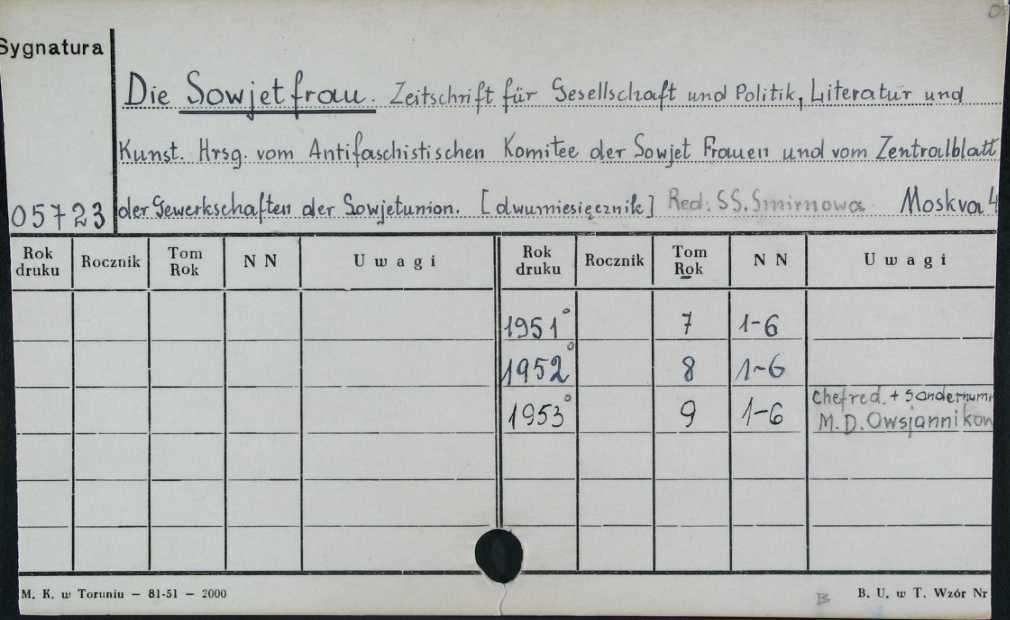 Sygnatura
Die Sowjetfrau. Zeitschrift für Gesellschaft und Politik, Literatur und
Kunst. Hrsg. vom Antifaschistischen Komitee der Sowjet Frauen und vom Zentralblatt
05723 der Gewerkschaften der Sowjetunion. [dwumiesięcznik] Red: SS. Smirnowa Moskva 4
Rok druku Rocznik Tom Rok N N Uwagi Rok druku Rocznik Tom Rok N N Uwagi
1951° 7 1-6
1952° 8 1-6
Chefred. + Sondernumr
1953° 9 1-6 M. D. Owsjannikow
M. K. w Toruniu — 81-51 — 2000 B B. U. w T. Wzór Nr